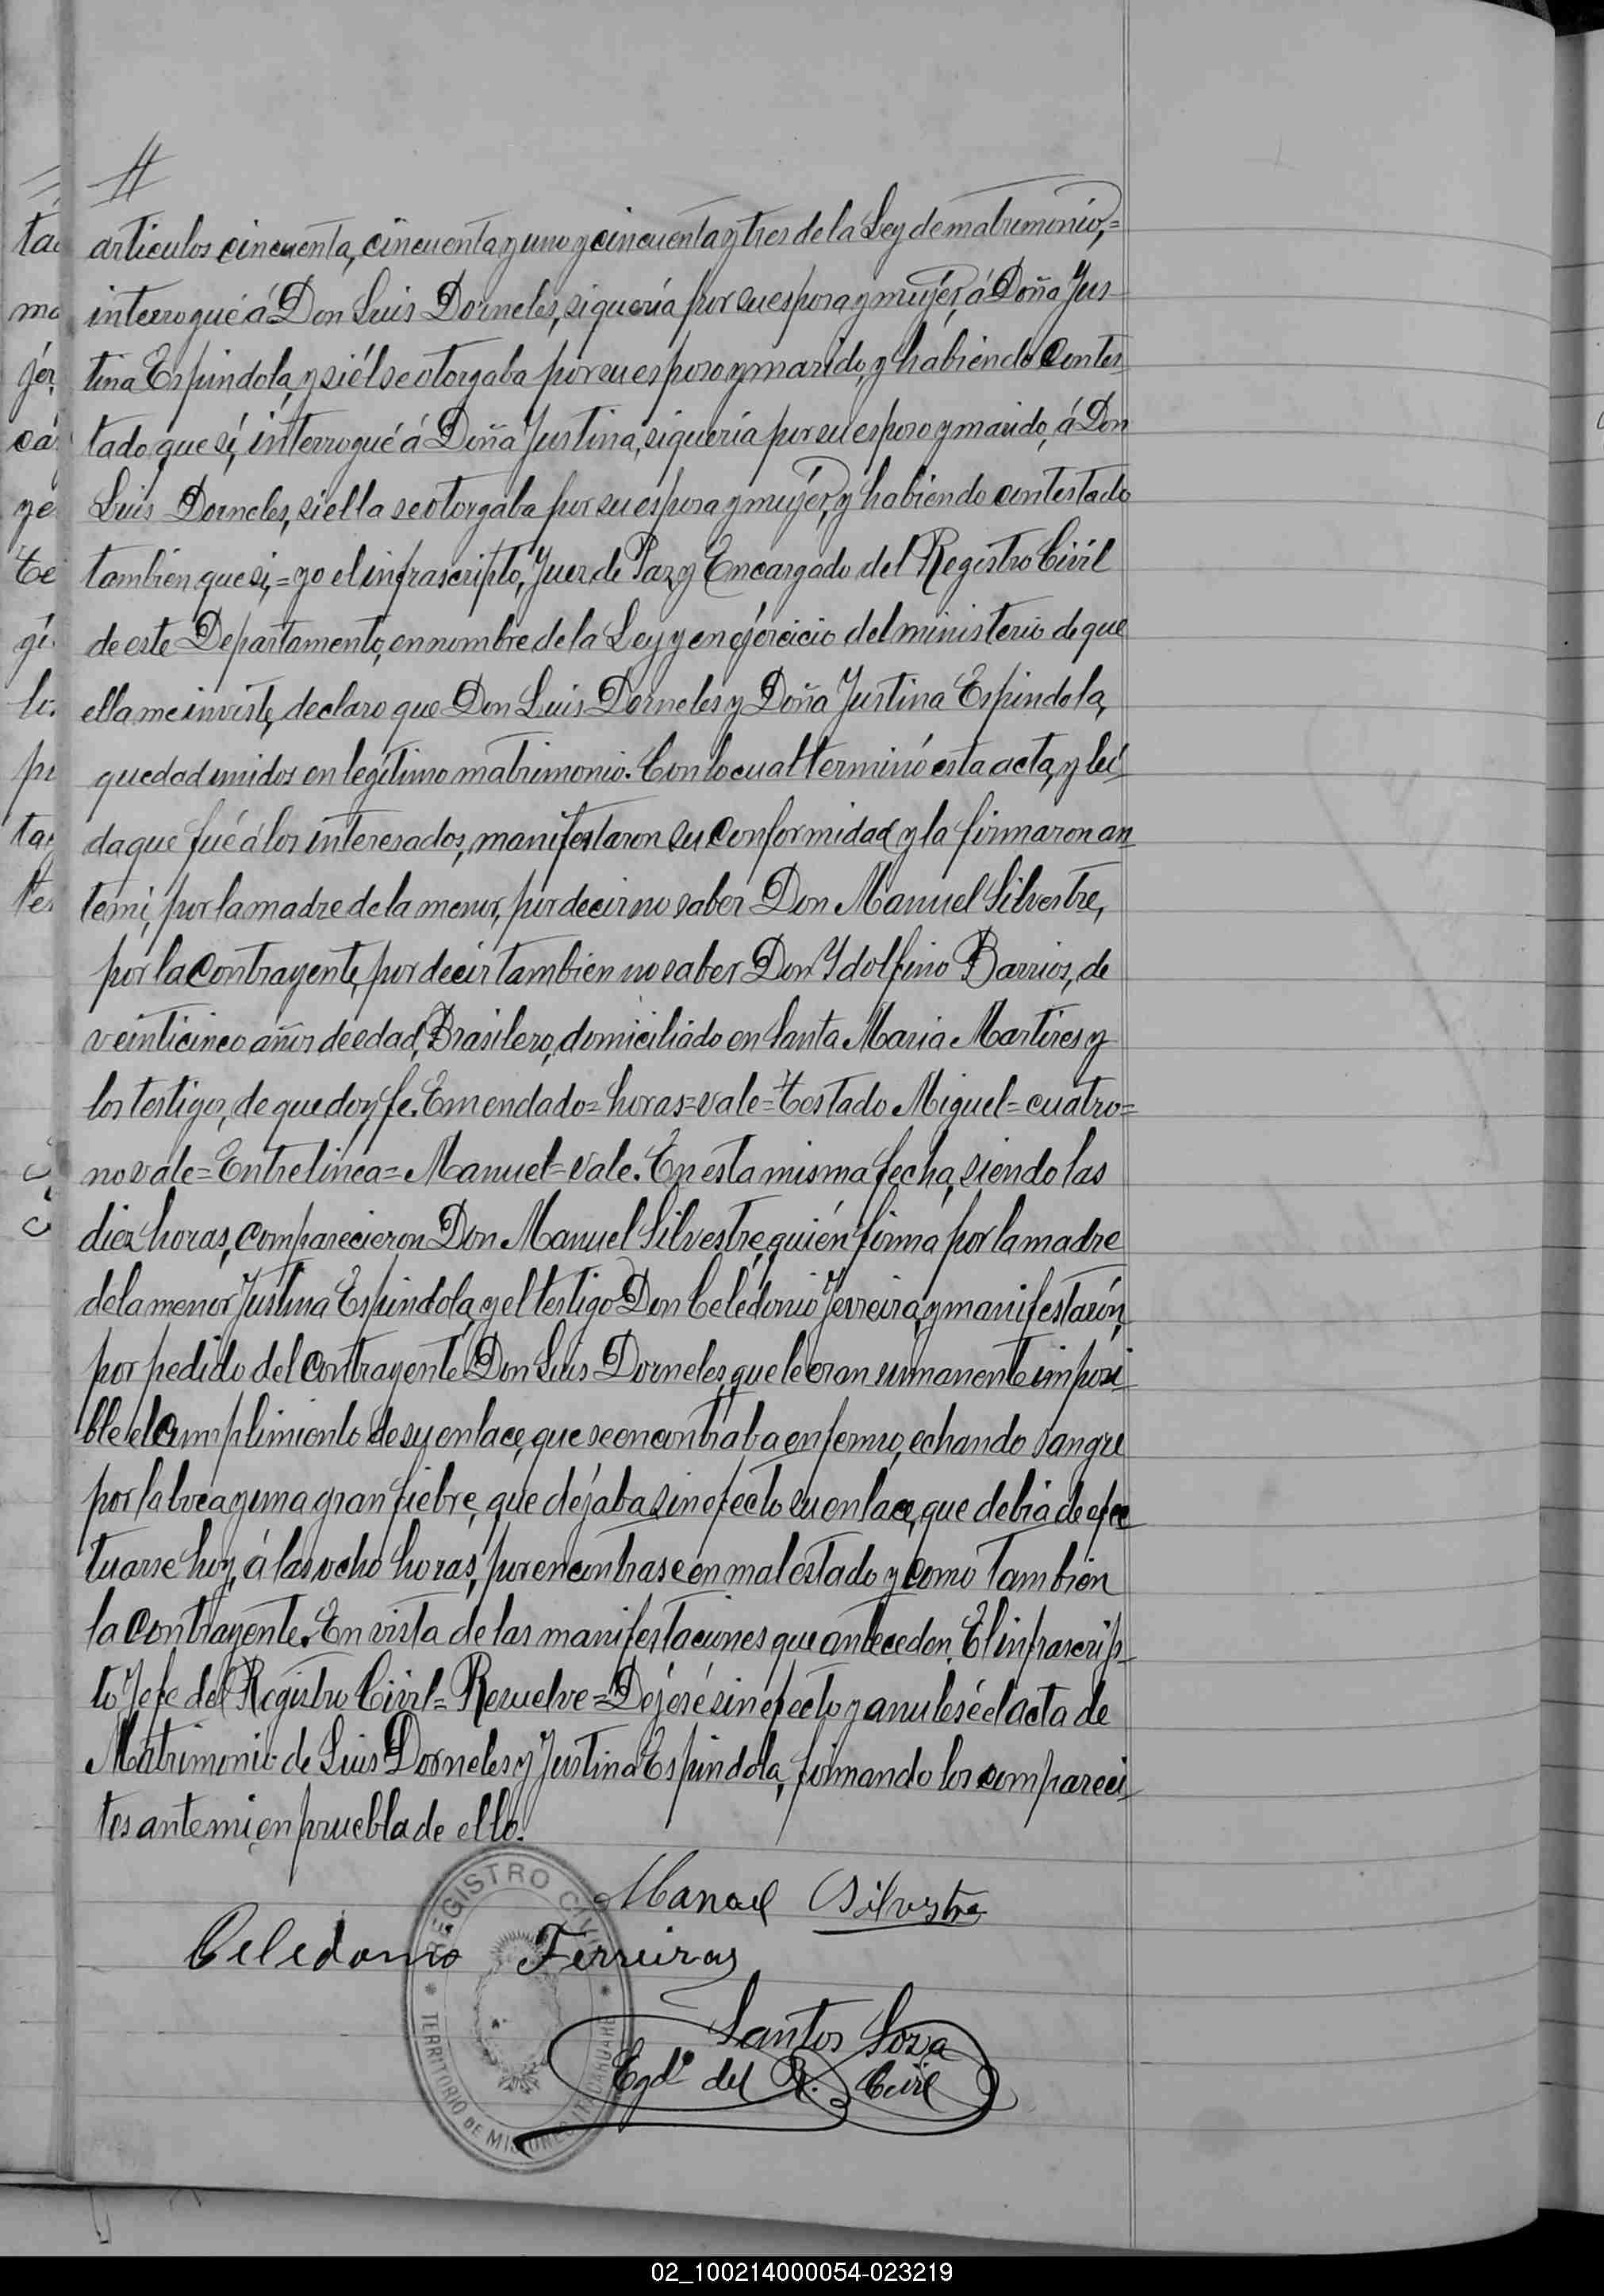 //
articulos cincuenta, cincuenta y uno y cincuenta y tres de la Ley de matrimonio,=
interrogué á Don Luis Dorneles, si quería por su esposa y mujér, á Doña Jus-
tina Espindola, y si él se otorgaba por su esposo y marido, y habiendo contes-
tado que sí, interrogué á Doña Justina, si quería por su esposo y marido, á Don
Luis Dorneles, si ella se otorgaba por su esposa y mujér, y habiendo contestado
tambien que si,= yo el infrascripto, Juez de Paz y Encargado del Registro Civil
de este Departamento, en nombre de la Ley y en ejércicio del ministerio de que
ella me inviste, declaro que Don Luis Dorneles y Doña Justina Espindola,
quedad unidos en legítimo matrimonio. Con lo cual terminó esta acta, y leí-
da que fué á los interesados, manifestaron su conformidad y la firmaron an-
te mi, por la madre de la menor, por decir no saber Don Manuel Silvestre,
por la contrayente, por decir tambien no saber Don Ydolfino Barrios, de
veinticinco años de edad, Brasilero, domiciliado en Santa Maria Martires y
los testigos, de que doy fe. Emendado=horas=vale=Testado Miguel=cuatro=
no vale=Entrelinea=Manuel=vale. En esta misma fecha, siendo las
diez horas, comparecieron Don Manuel Silvestre, quién firma por la madre
de la menor Justina Espindola, y el testigo Don Celédonio Ferreira, y manifestarón,
por pedido del contrayente Don Luis Dorneles, que le eran sumanente imposi-
ble el cumplimiento de su enlace, que se encontraba enfermo, echando sangre
por la boca y una gran fiebre, que dejaba sin efecto su enlace, que debia de efec-
tuarse hoy, á las ocho horas, por encontrase en mal estado y como tambien
la contrayente. En vista de las manifestaciones que anteceden. El infrascrip-
to Jefe del Registro Civil=Resuelve=Déjesé sin efecto y anulesé el acta de
Matrimonio de Luis Dorneles y Justina Espindola, firmando los compareci-
tes ante mi, en pruebla de ello.
Manoel Silvestre
Celedonio Ferreiras
Santos Soza
Egdº del R. Civil
REGISTRO CIVIL
TERRITORIO DE MISIONES ITACARUARÉ
02_100214000054-023219